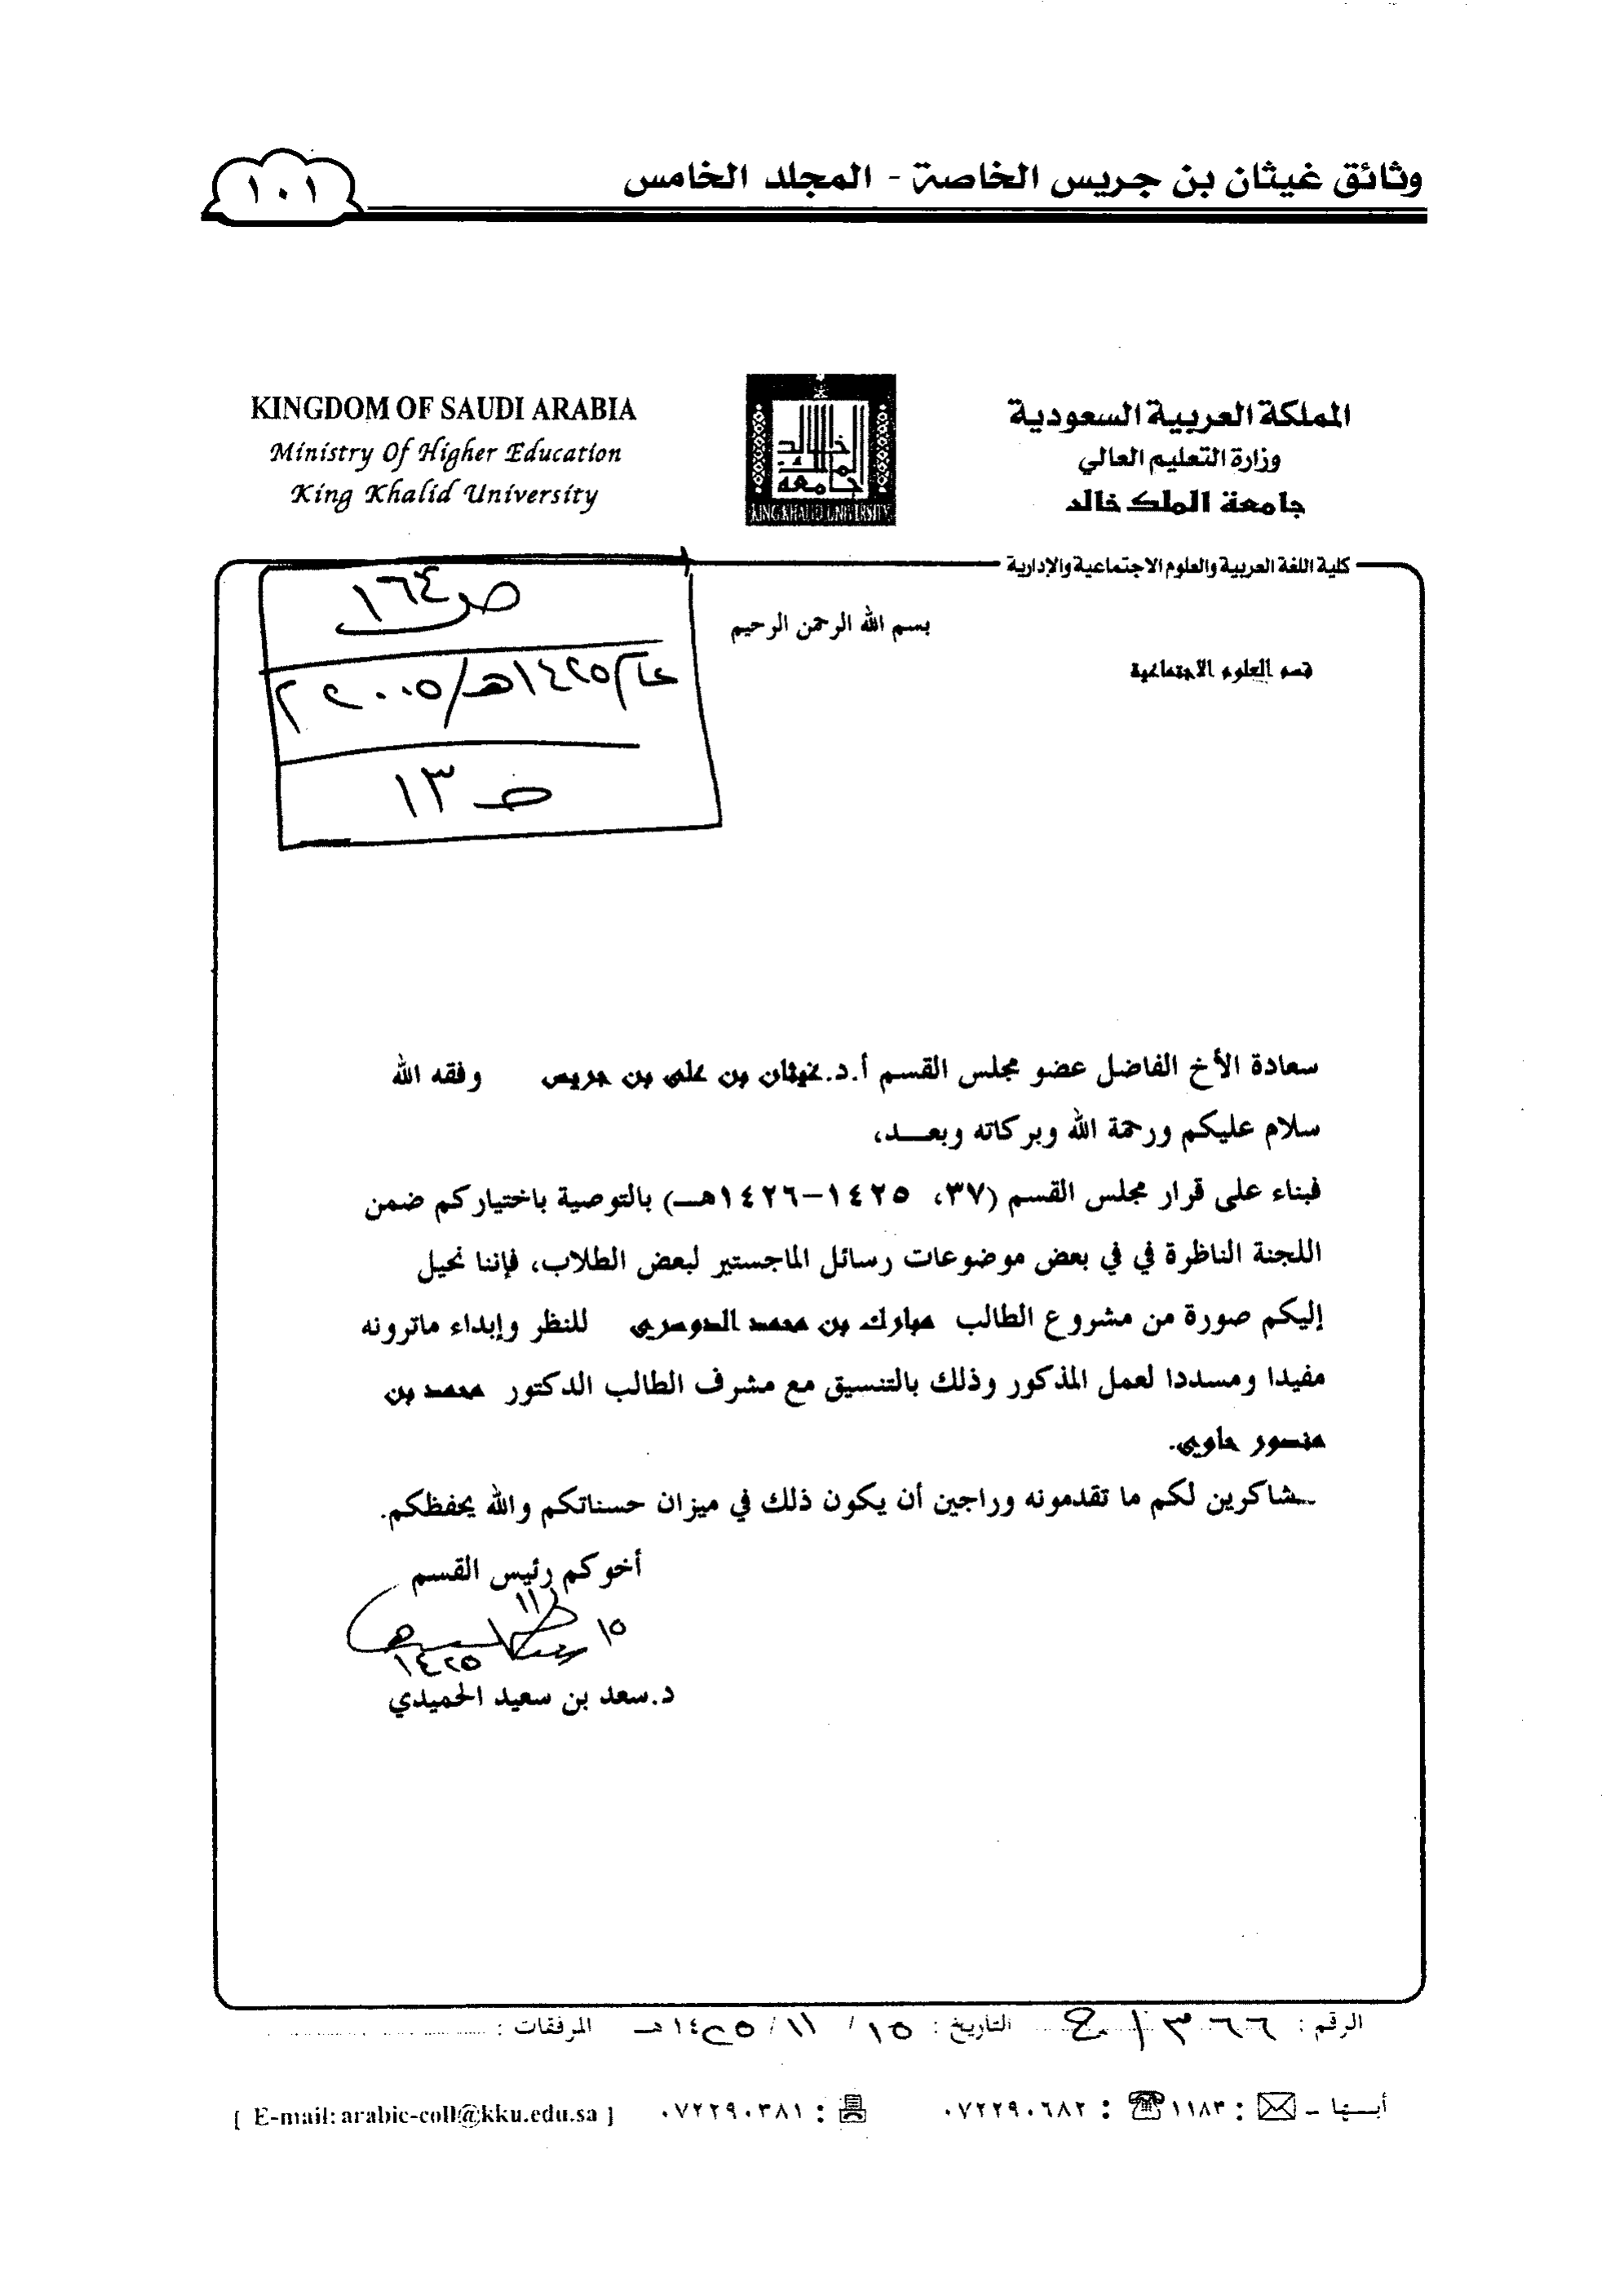 وثائق غيثان بن جريس الخاصة - المجلد الخامس
١٠١
المملكة العربية السعودية
وزارة التعليم العالي
جامعة الملك خالد
KINGDOM OF SAUDI ARABIA
Ministry Of Higher Education
King Khalid University
جامعة الملك خالد
KING KHALID UNIVERSITY
كلية اللغة العربية والعلوم الاجتماعية والإدارية
بسم الله الرحمن الرحيم
قسم العلوم الاجتماعية
ص ١٦٤
عام ١٤٢٥هـ/٢٠٠٥م
ص ١٣
سعادة الأخ الفاضل عضو مجلس القسم أ.د.غيثان بن علي بن جريس وفقه الله
سلام عليكم ورحمة الله وبركاته وبعـــد،
فبناء على قرار مجلس القسم (٣٧، ١٤٢٥-١٤٢٦هـ) بالتوصية باختياركم ضمن
اللجنة الناظرة في في بعض موضوعات رسائل الماجستير لبعض الطلاب، فإننا نحيل
إليكم صورة من مشروع الطالب مبارك بن محمد الدوسري للنظر وإبداء ماترونه
مفيدا ومسددا لعمل المذكور وذلك بالتنسيق مع مشرف الطالب الدكتور محمد بن
منصور حاوي.
شاكرين لكم ما تقدمونه وراجين أن يكون ذلك في ميزان حسناتكم والله يحفظكم.
أخوكم رئيس القسم
١٥
١١
١٤٢٥
د.سعد بن سعيد الحميدي
الرقم : ٣٦٦/ع التاريخ : ١٥ / ١١ / ١٤٢٥هـ المرفقات :
أبـها - : ١١٨٣ : ٠٧٢٢٩٠٦٨٢ : ٠٧٢٢٩٠٣٨١ [ E-mail: arabic-coll@kku.edu.sa ]